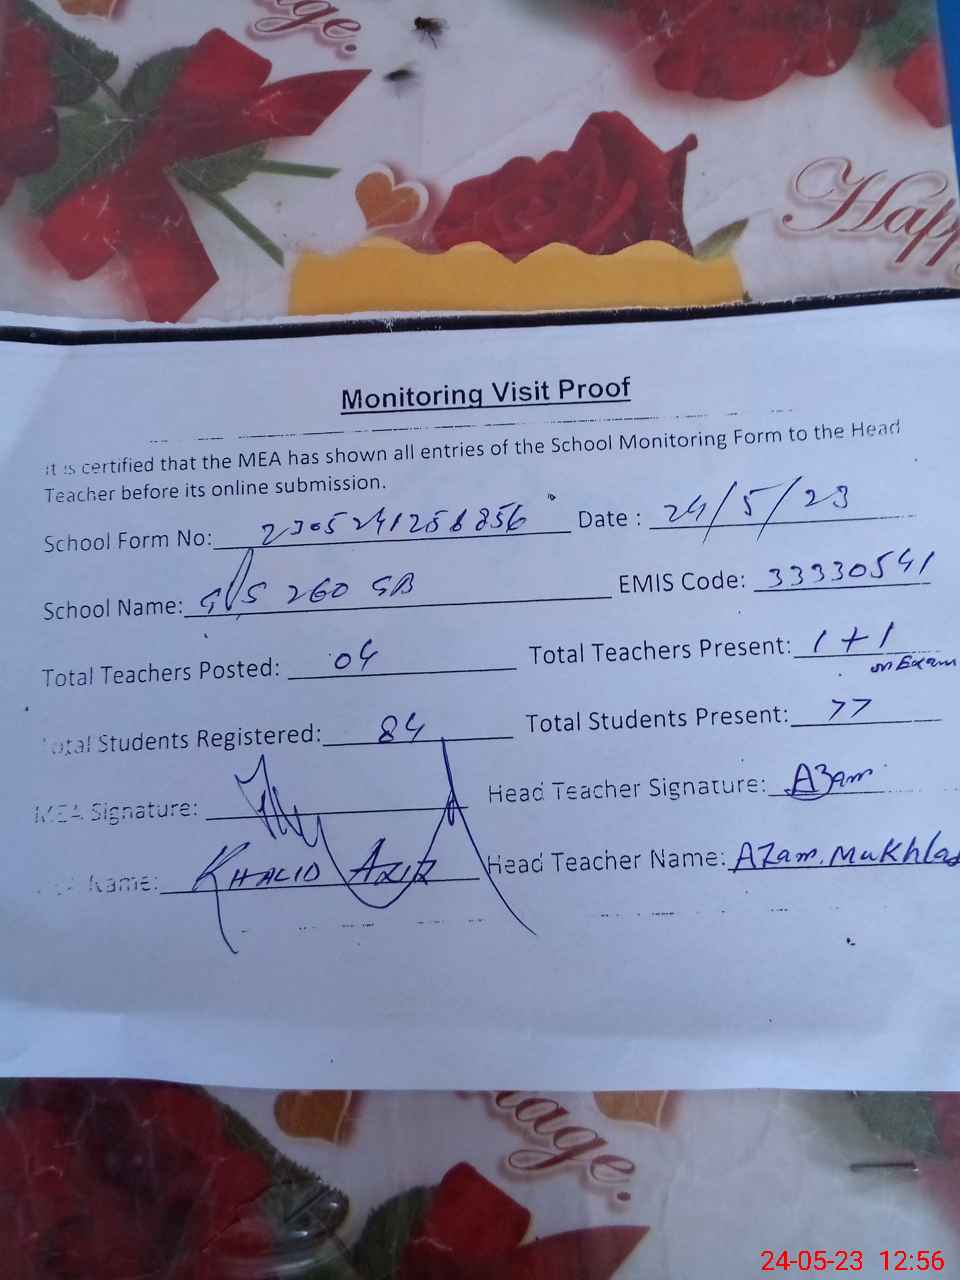 age.
Happy
Monitoring Visit Proof
It is certified that the MEA has shown all entries of the School Monitoring Form to the Head
Teacher before its online submission.
School Form No: 2305241258856 Date : 24/5/23
School Name: GPS 260 GB EMIS Code: 33330541
Total Teachers Posted: 04 Total Teachers Present: 1+1
on Exam
Total Students Registered: 84 Total Students Present: 77
MEA Signature: Head Teacher Signature: Azam
MEA Name: KHALID AZIZ Head Teacher Name: AZam. Mukhlas
age.
24-05-23 12:56